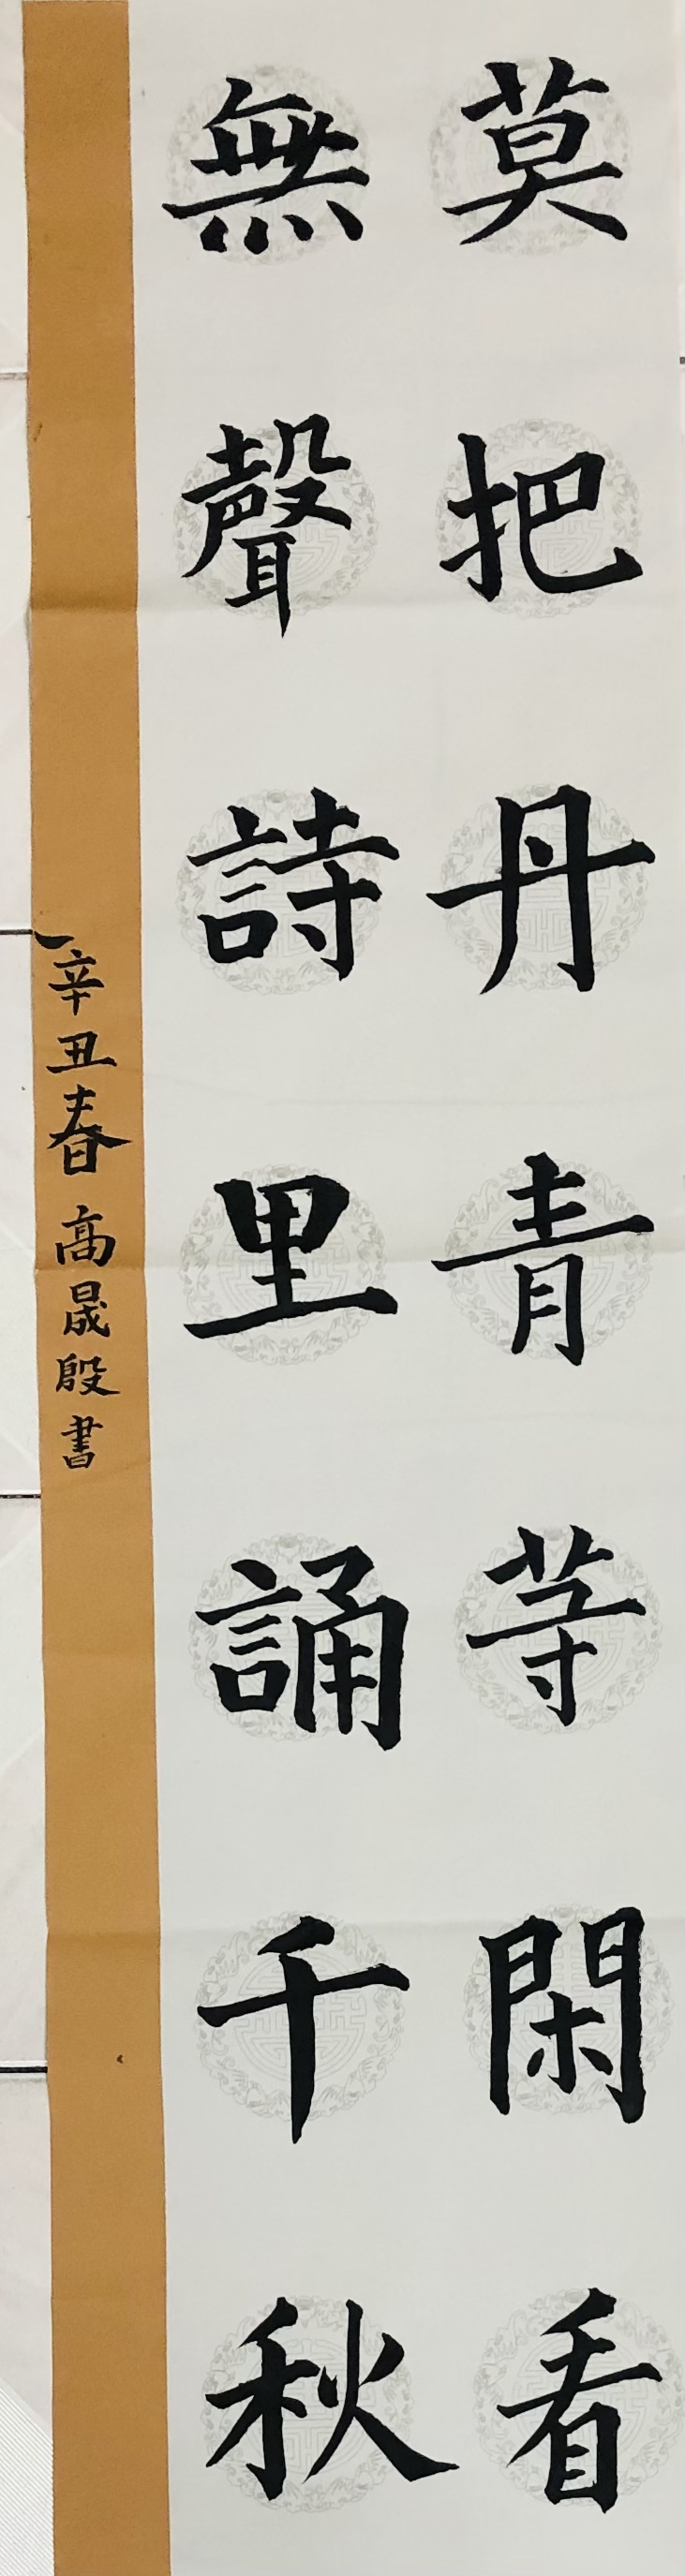 莫把丹青等閑看
無聲詩里誦千秋
辛丑春高晟殷書